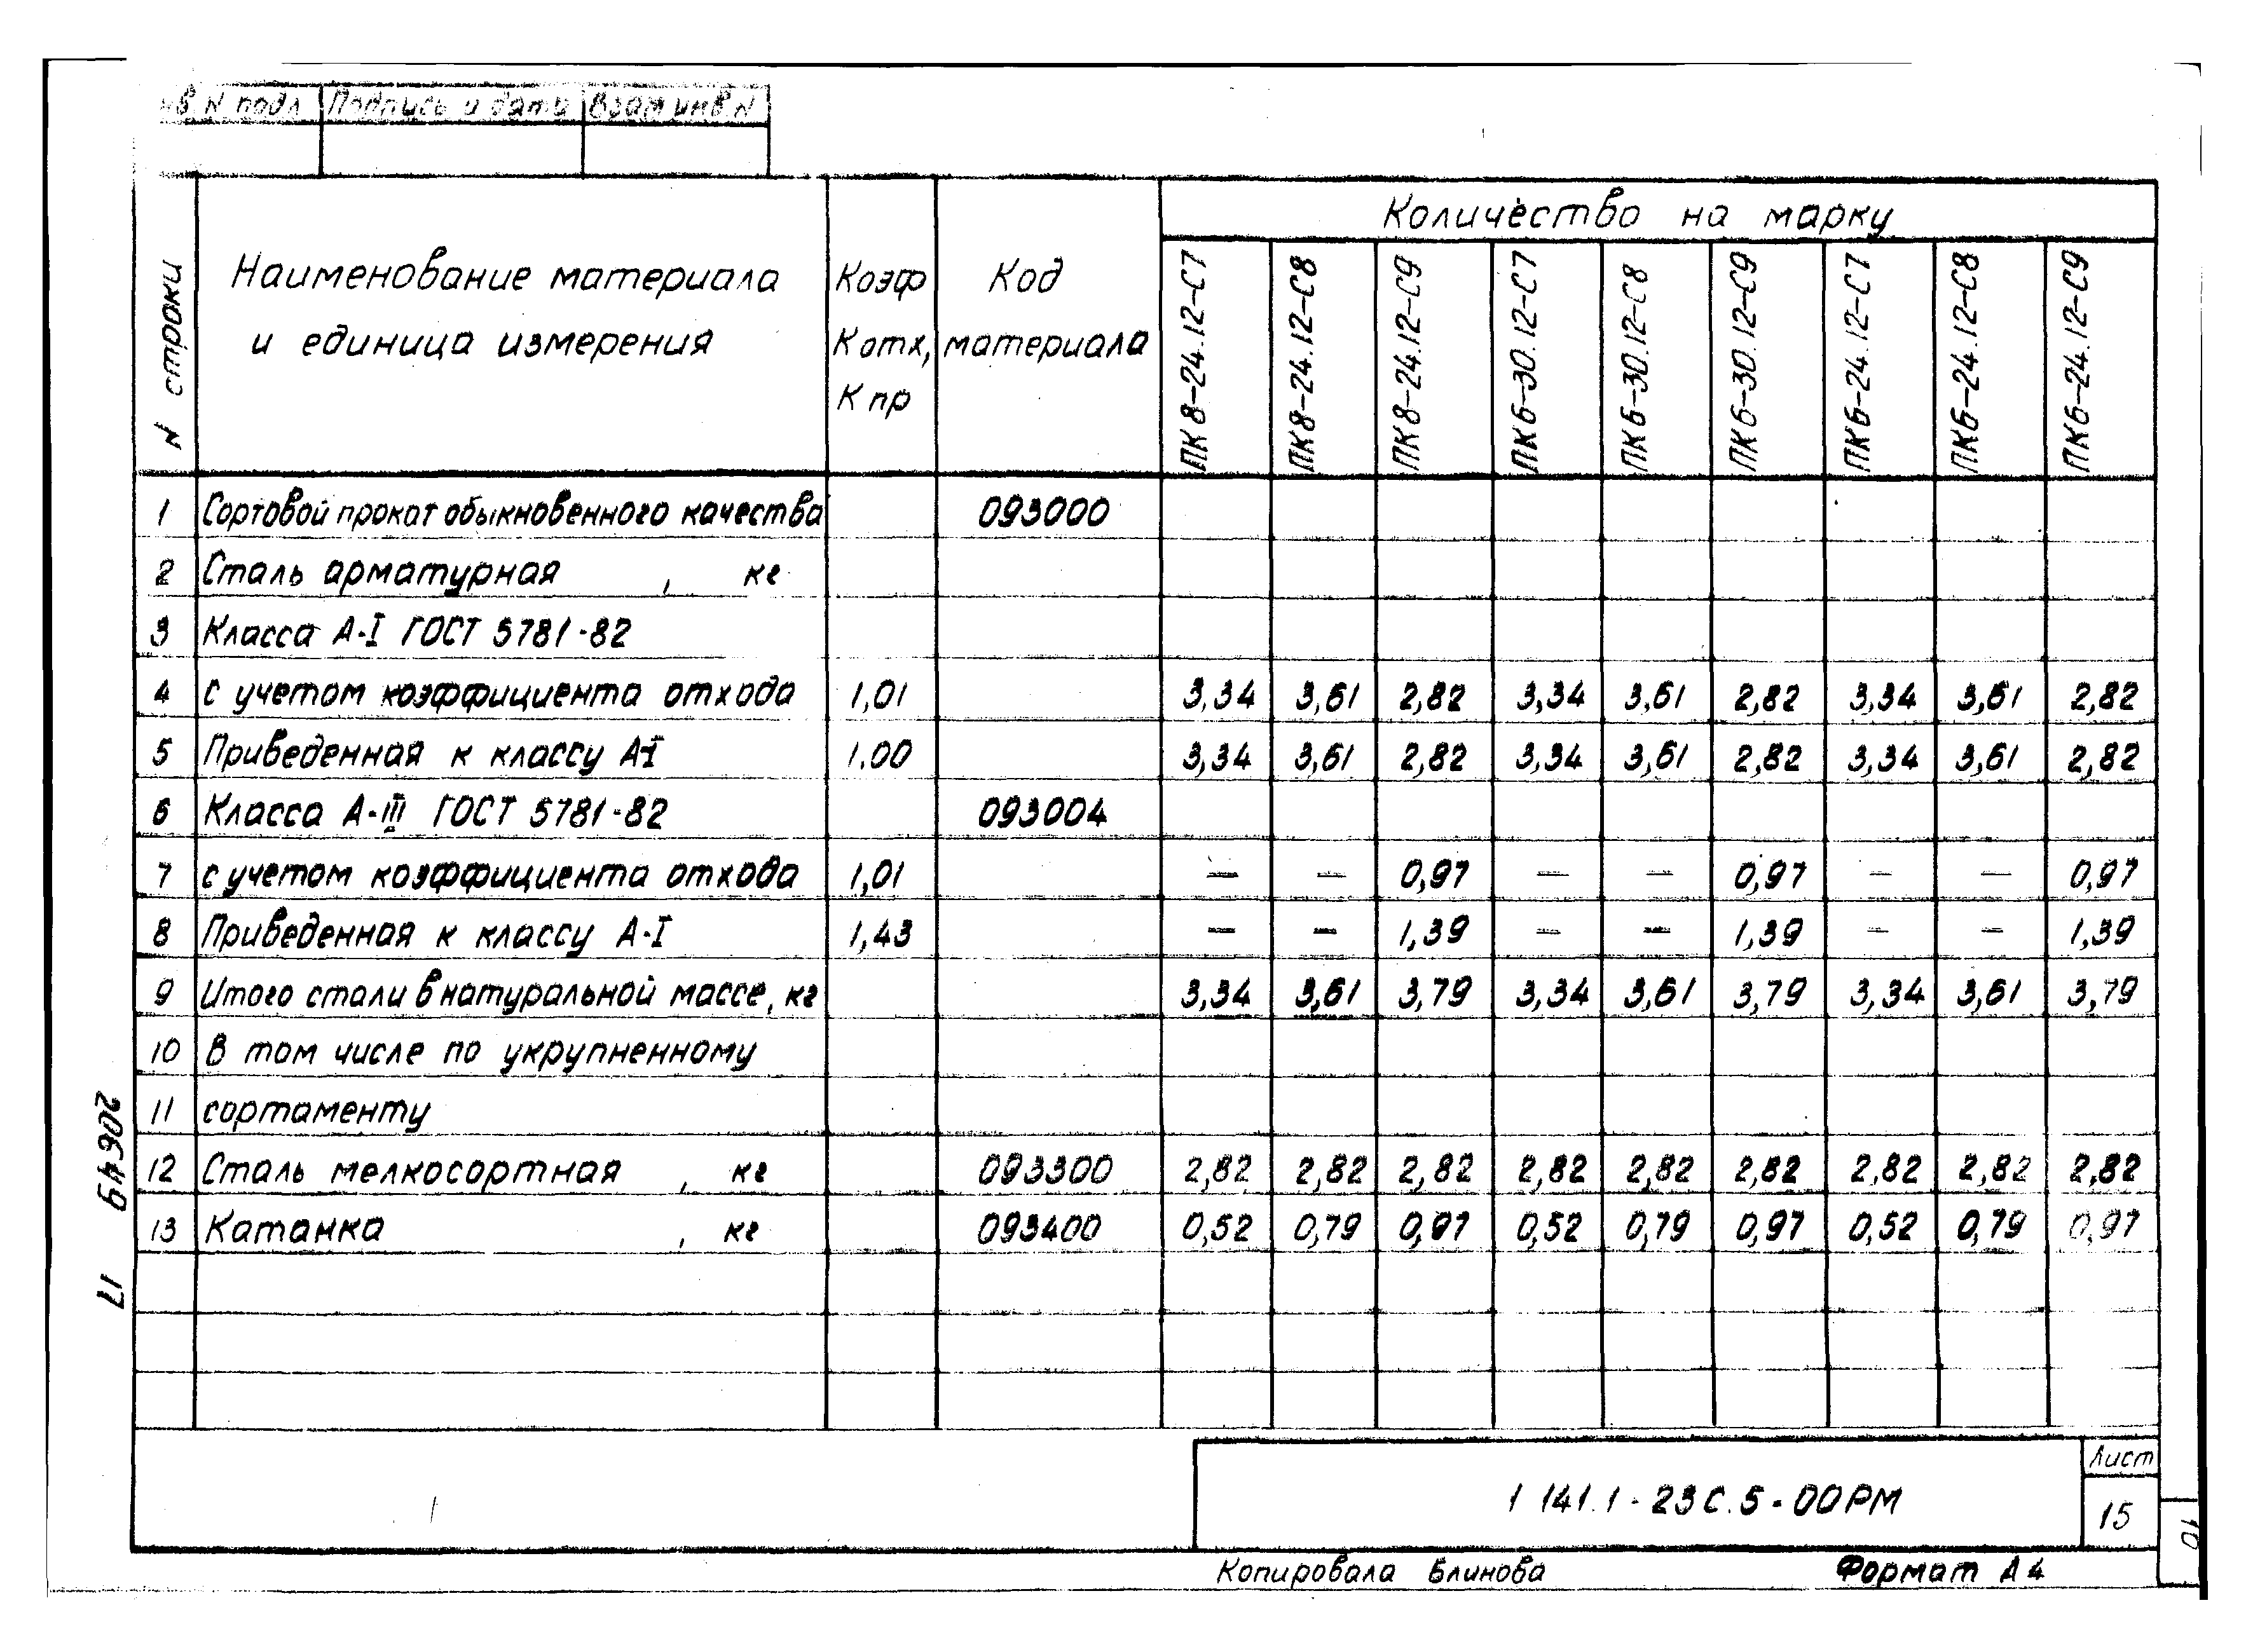 нв.N подл Подпись и дата Взам.инв.N
N строки
Наименование материала
и единица измерения
Коэф
К отх,
К пр
Код
материала
Количество на марку
ПК8-24.12-С7 ПК8-24.12-С8 ПК8-24.12-С9 ПК6-30.12-С7 ПК6-30.12-С8 ПК6-30.12-С9 ПК6-24.12-С7 ПК6-24.12-С8 ПК6-24.12-С9
1 Сортовой прокат обыкновенного качества 093000
2 Сталь арматурная , кг
3 Класса А-I ГОСТ 5781-82
4 с учетом коэффициента отхода 1,01 3,34 3,61 2,82 3,34 3,61 2,82 3,34 3,61 2,82
5 Приведенная к классу А-I 1.00 3,34 3,61 2,82 3,34 3,61 2,82 3,34 3,61 2,82
6 Класса А-III ГОСТ 5781-82 093004
7 с учетом коэффициента отхода 1,01 — — 0,97 — — 0,97 — — 0,97
8 Приведенная к классу А-I 1,43 — — 1,39 — — 1,39 — — 1,39
9 Итого стали в натуральной массе, кг 3,34 3,61 3,79 3,34 3,61 3,79 3,34 3,61 3,79
10 В том числе по укрупненному
11 сортаменту
12 Сталь мелкосортная , кг 093300 2,82 2,82 2,82 2,82 2,82 2,82 2,82 2,82 2,82
13 Катанка , кг 093400 0,52 0,79 0,97 0,52 0,79 0,97 0,52 0,79 0,97
20649 17
1 141.1-23С.5-00РМ
Лист
15
10
Копировала Блинова Формат А4